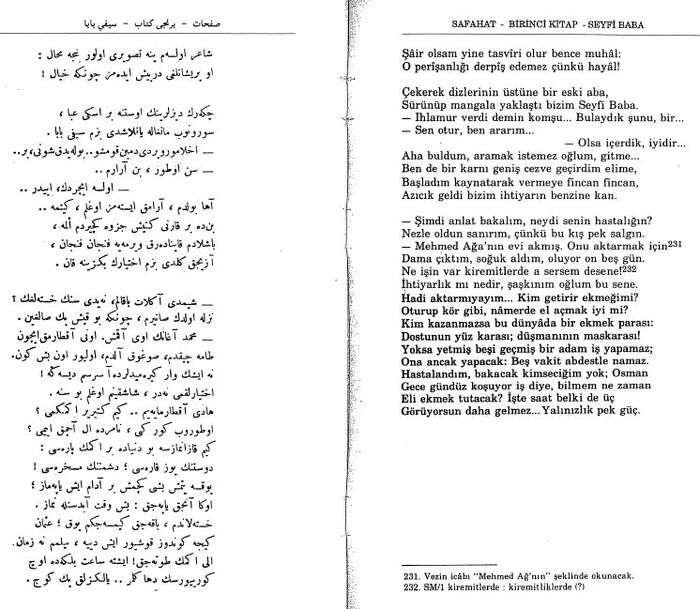 صفحات – برنجی كتاب – سیفی بابا
شاعر اولسه‌م ینه تصویری اولور بنجه محال :
او پریشانلغی درپیش ایده‌مز چونكه خیال !
چكه‌رك دیزلرینك اوستنه بر اسكی عبا ،
سورونوب مانغاله یاقلاشدی بزم سیفی بابا .
— اخلامور ویردی دمین قومشو.. بوله‌یدق شونی، بر..
— سن اوطور ، بن آرارم ..
— اولسه ایچردك، اییدر ..
آها بولدم ، آرامق ایسته‌مز اوغلم ، كیتمه ..
بن ده بر قارنی كنیش جزوه كچیردم المه ،
باشلادم قایناده‌رق ویرمه‌یه فنجان فنجان ،
آزیجق كلدی بزم اختیارك بكزینه قان .
— شیمدی آكلات باقالم، نه‌یدی سنك خسته‌لغك ؟
نزله اولدك صانیرم ، چونكه بو قیش پك صالغین .
— محمد آغانك اوی آقمش. اونی آقطارمق ایچون
طامه چیقدم، صوغوق آلدم، اولیور اون بش كون.
نه ایشك وار كیره‌میدلرده آ سرسم دیسه‌كه !
اختیارلقمی نه‌در ، شاشقینم اوغلم بو سنه .
هادی آقطارمایه‌یم .. كیم كتیریر اكمكمی ؟
اوطوروب كور كبی ، نامرده ال آچمق ایمی ؟
كیم قازانمازسه بو دنیاده بر اكمك پاره‌سی :
دوستنك یوز قاره‌سی ؛ دشمننك مسخره‌سی !
یوقسه یتمش بشی كچمش بر آدام ایش یاپه‌ماز ؛
اوكا آنجق یاپه‌جق : بش وقت آبدستله نماز .
خسته‌لاندم ، باقه‌جق كیمسه‌جكم یوق ؛ عثمان
كیجه كوندوز قوشیور ایش دییه ، بیلمم نه زمان
الی اكمك طوته‌جق! ایشته ساعت بلكه‌ده اوچ
كورییورسك دها كلمز .. یالكزلق پك كوچ .
SAFAHAT - BİRİNCİ KİTAP - SEYFİ BABA
Şâir olsam yine tasvîri olur bence muhâl:
O perîşanlığı derpîş edemez çünkü hayâl!
Çekerek dizlerinin üstüne bir eski aba,
Sürünüp mangala yaklaştı bizim Seyfi Baba.
— Ihlamur verdi demin komşu... Bulaydık şunu, bir...
— Sen otur, ben ararım...
— Olsa içerdik, iyidir...
Aha buldum, aramak istemez oğlum, gitme...
Ben de bir karnı geniş cezve geçirdim elime,
Başladım kaynatarak vermeye fincan fincan,
Azıcık geldi bizim ihtiyarın benzine kan.
— Şimdi anlat bakalım, neydi senin hastalığın?
Nezle oldun sanırım, çünkü bu kış pek salgın.
— Mehmed Ağa'nın evi akmış. Onu aktarmak için231
Dama çıktım, soğuk aldım, oluyor on beş gün.
Ne işin var kiremitlerde a sersem desene!232
İhtiyarlık mı nedir, şaşkınım oğlum bu sene.
Hadi aktarmıyayım... Kim getirir ekmeğimi?
Oturup kör gibi, nâmerde el açmak iyi mi?
Kim kazanmazsa bu dünyâda bir ekmek parası:
Dostunun yüz karası; düşmanının maskarası!
Yoksa yetmiş beşi geçmiş bir adam iş yapamaz;
Ona ancak yapacak: Beş vakit abdestle namaz.
Hastalandım, bakacak kimseciğim yok; Osman
Gece gündüz koşuyor iş diye, bilmem ne zaman
Eli ekmek tutacak? İşte saat belki de üç
Görüyorsun daha gelmez... Yalınızlık pek güç.
231. Vezin icâbı "Mehmed Ağ'nın" şeklinde okunacak.
232. SM/1 kiremitlerde : kiremitliklerde (?)